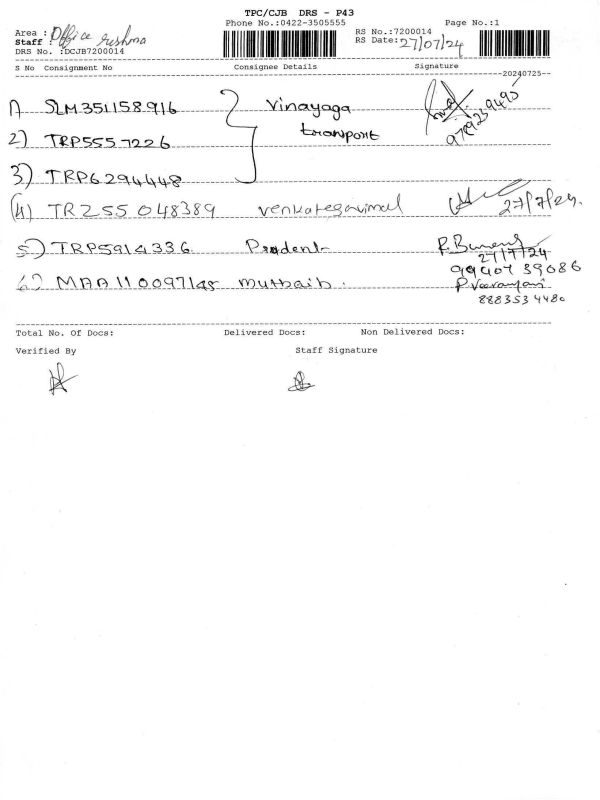 TPC/CJB DRS - P43
Phone No.:0422-3505555
Page No.:1
Area : Office
Staff : reshma
DRS No. :DCJB7200014
RS No.:7200014
RS Date: 27/07/24
S No Consignment No Consignee Details Signature
20240725
1) SLM351158916 Vinayaga
2) TRP5557226 transport
3) TRP6294448
(4) TRZ55048389 27/7/24
5) TRP5914336 Prudent
27/7/24
99407 39086
6) MAA110097148 muthaib.
888353 4480
Total No. Of Docs: Delivered Docs: Non Delivered Docs:
Verified By Staff Signature